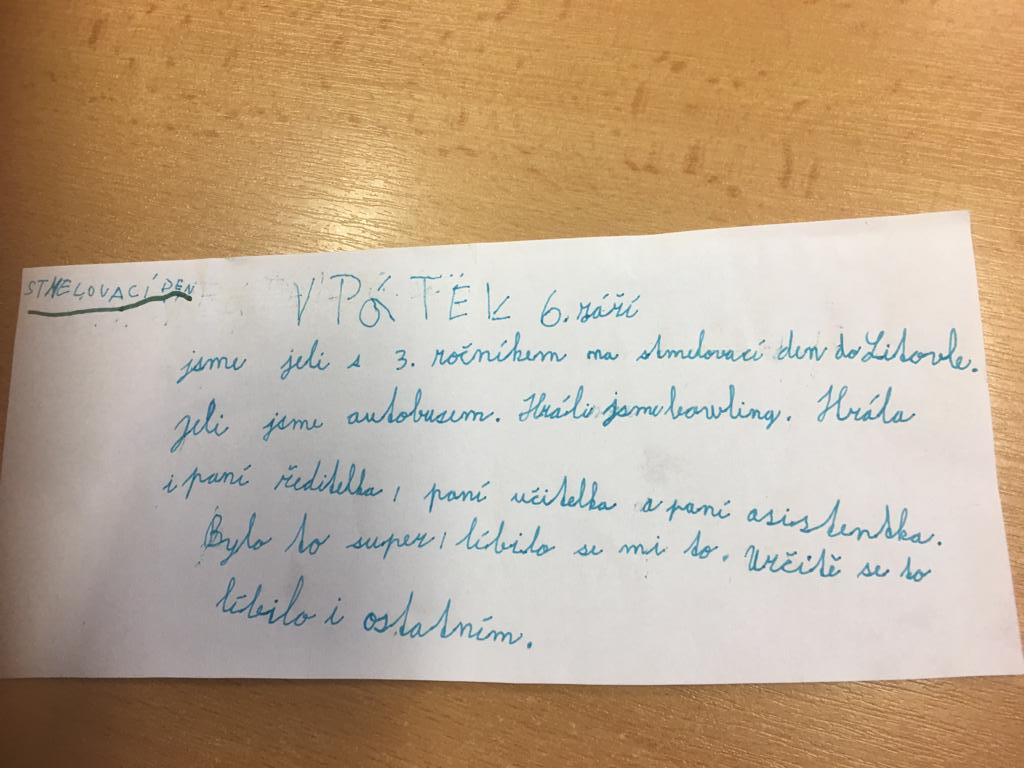 STMELOVACÍ DEN
V PÁTEK 6. září
jsme jeli s 3. ročníkem na stmelovací den do Litovle.
Jeli jsme autobusem. Hráli jsme bowling. Hrála
i paní ředitelka, paní učitelka a paní asistentka.
Bylo to super, líbilo se mi to. Určitě se to
líbilo i ostatním.